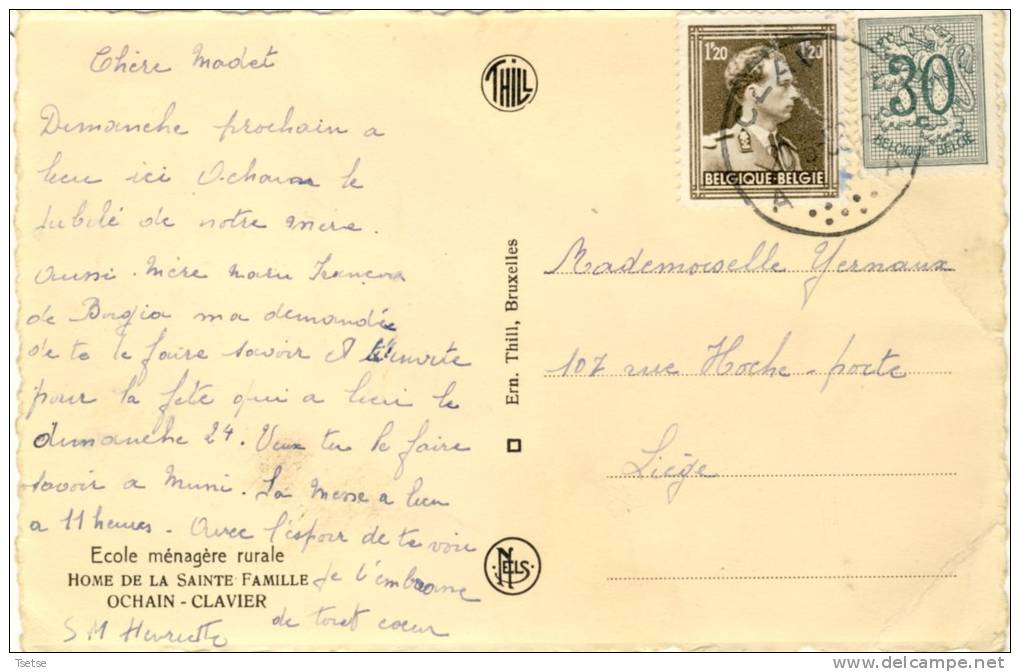 Chère Madet
Dimanche prochain a
lieu ici Ochain le
Jubilé de notre mère.
Aussi. Mère Marie Francois
de Borgia ma demandée
de te le faire savoir et t'invite
pour la fête qui a lieu le
dimanche 24. Veux tu le faire
savoir a Mimi. La Messe a lieu
a 11 heures. Avec l'espoir de te voir
je t'embrasse
de tout cœur
S M Henriette
Ecole ménagère rurale
HOME DE LA SAINTE FAMILLE
OCHAIN - CLAVIER
THILL
Ern. Thill, Bruxelles
NELS
1'20 1'20
BELGIQUE-BELGIE
30
BELGIQUE BELGIE
A A
Mademoiselle Yernaux
107 rue Hoche-porte
Liège
Tsetse
delcampe.net